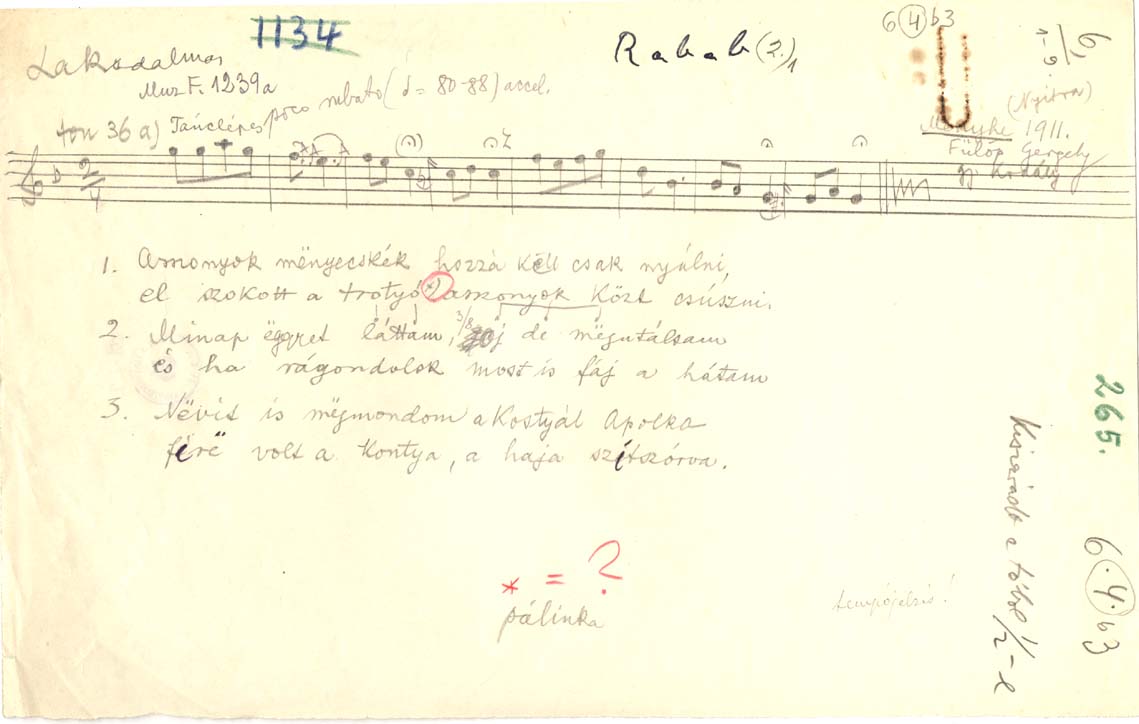 1134
Lakodalmas
Muz F. 1239a
Rabab (2.)1
6 4 b3
6)
1-9.
(Nyitra)
Menyhe 1911.
Fülöp Gergely
gy. Kodály
ton 36 a) Tánclépés poco rubato (♩= 80-88) accel.
2/4
1. Asszonyok mënyecskék hozzá këll csak nyúlni,
el szokott a trotyó *) asszonyok közt csúszni.
2. Minap ëggyet láttam, 3/8 jaj de mëgutálsam
és ha rágondolok most is fáj a hátam
3. Nëvit is mëgmondom a Kostyál Apolka
férë volt a kontya, a haja szítszórva.
* = ?
pálinka
tempójelzés!
265.
6.4.b3